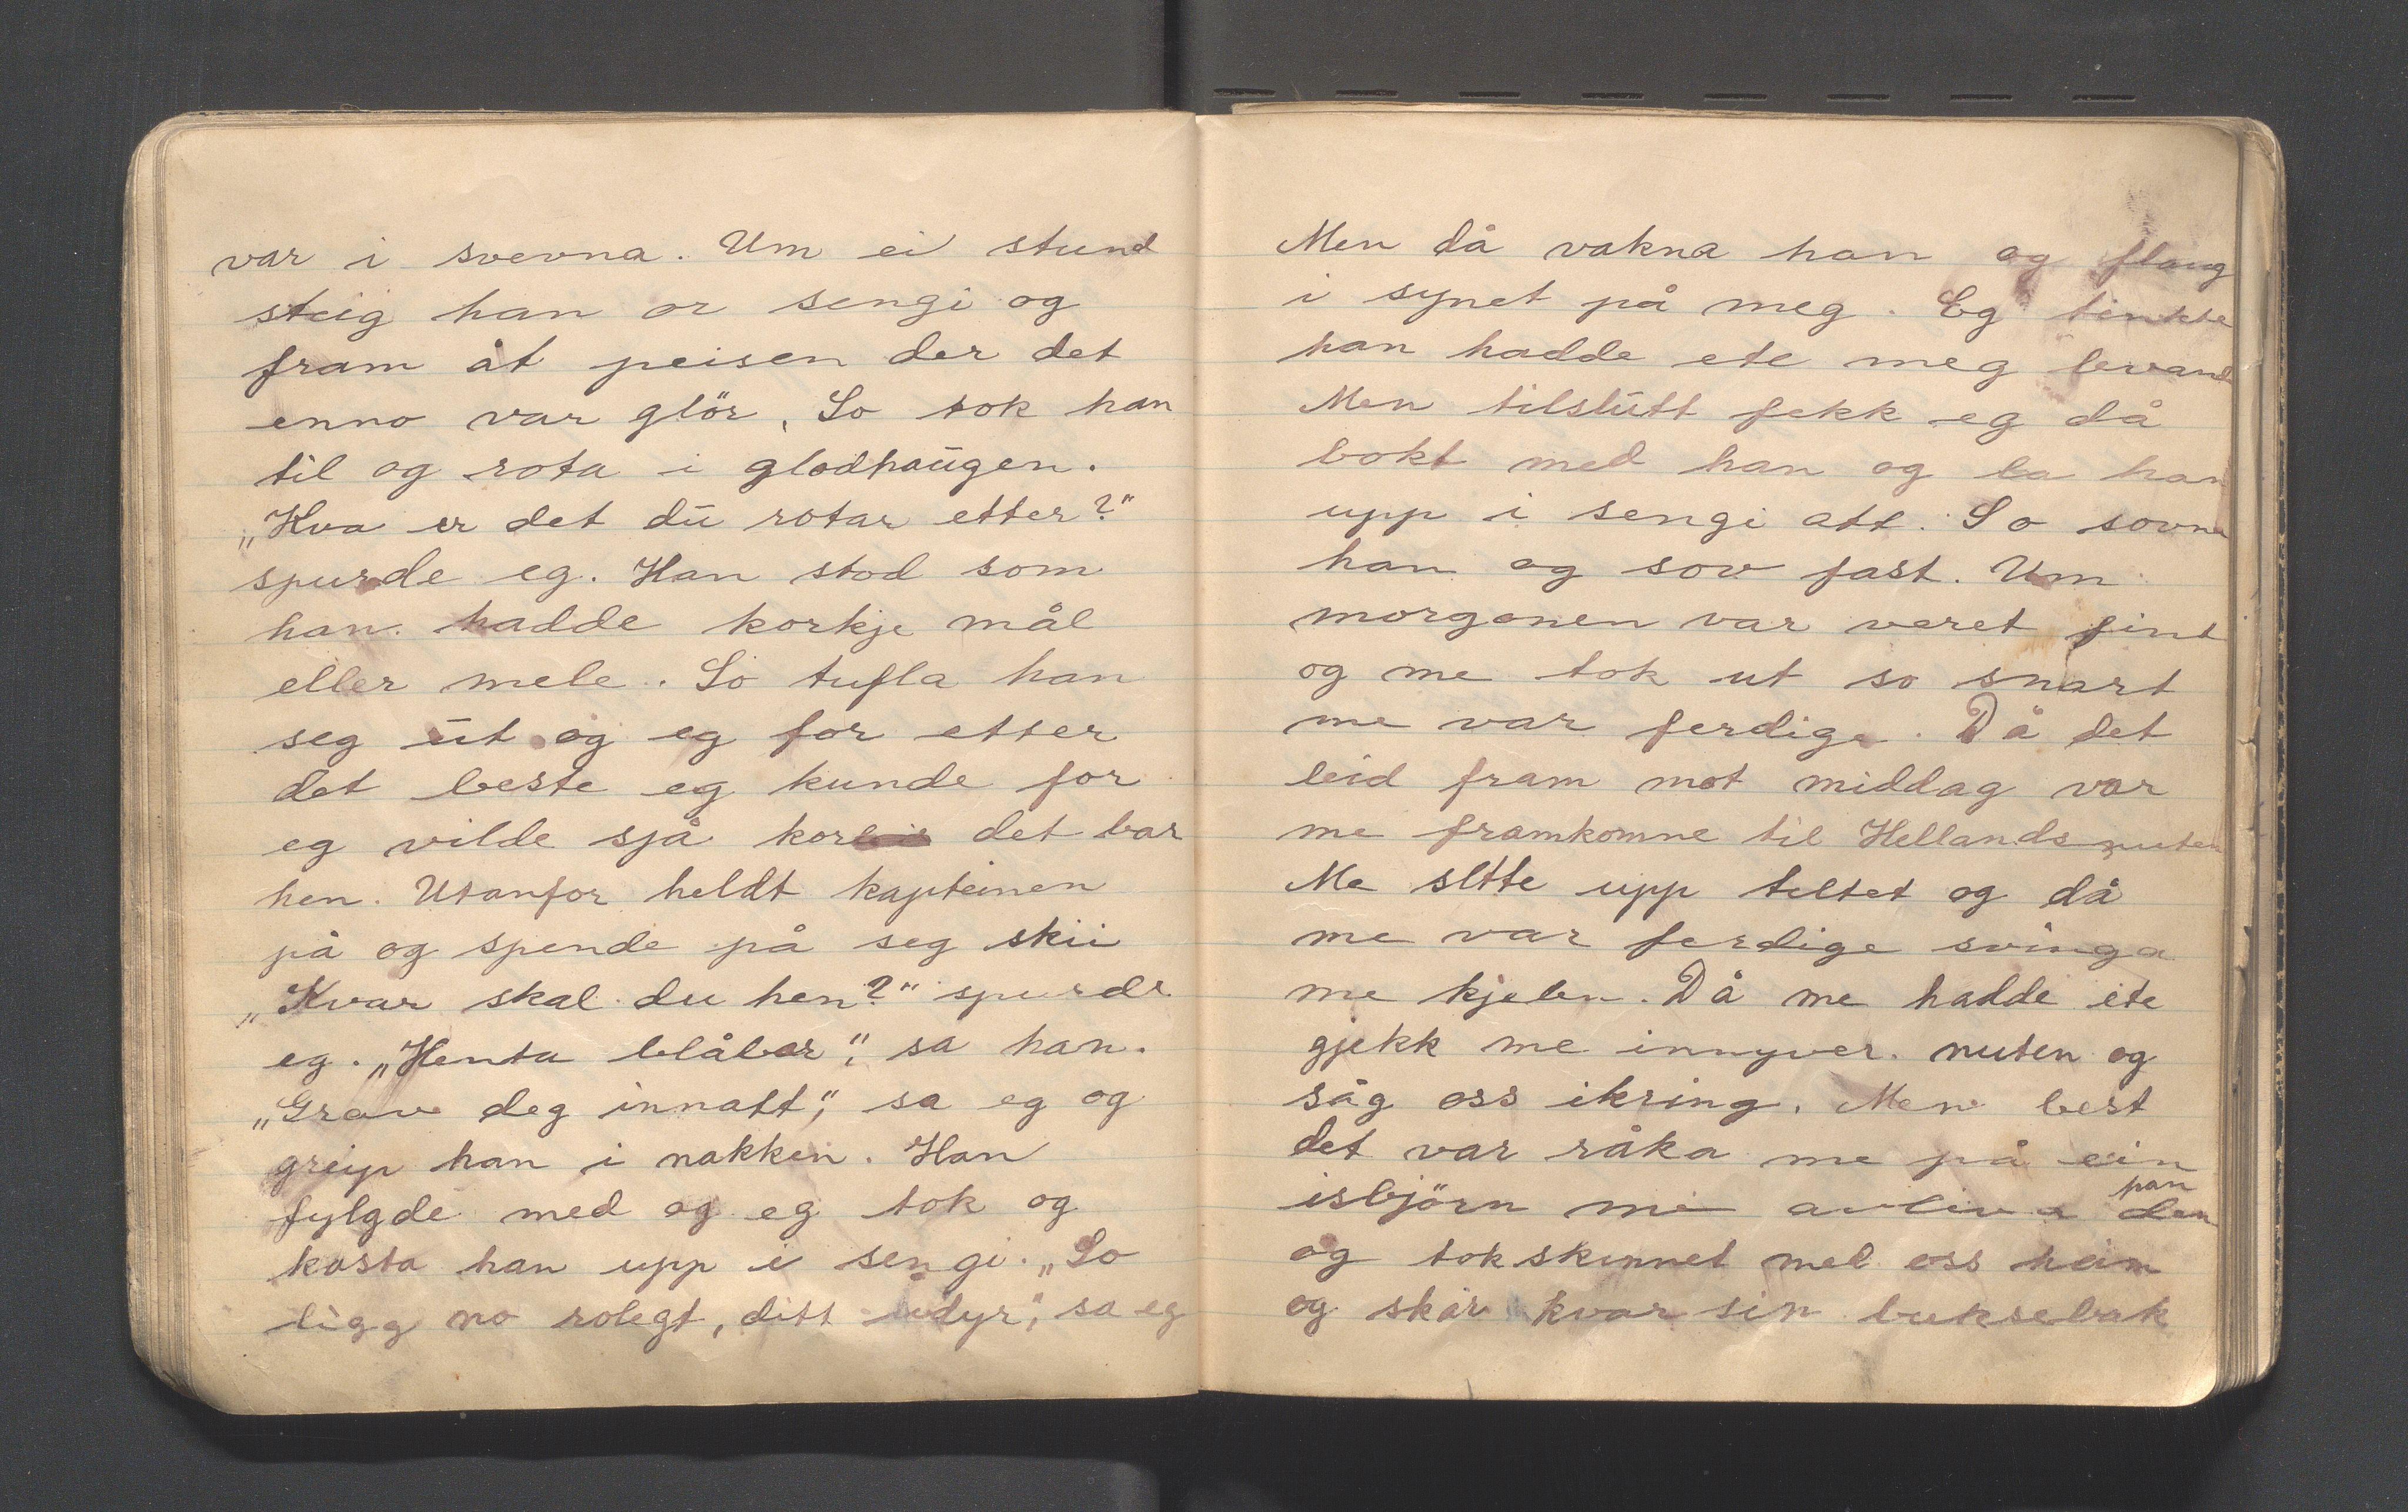 var i svevna. Um ei stund
steig han or sengi og
fram åt peisen der det
enno var glör. So tok han
til og rota i glodhaugen.
„Kva er det du rotar etter?“
spurde eg. Han stod som
han hadde korkje mål
eller mele. So tufla han
seg ut og eg for etter
det beste eg kunde for
eg vilde sjå kor det bar
hen. Utanfor heldt kapteinen
på og spende på seg skii
„Kvar skal du hen?“ spurde
eg. „Henta blåber“, sa han.
„Grav deg innatt“, sa eg og
greip han i nakken. Han
fylgde med og eg tok og
kasta han upp i sengi. „So
ligg no rolegt, ditt udyr“, sa eg
Men då vakna han og flaug
i synet på meg. Eg tenkte
han hadde ete meg levand
Men tilslutt fekk eg då
bokt med han og la han
upp i sengi att. So sovna
han og sov fast. Um
morgonen var veret fint
og me tok ut so snart
me var ferdige. Då det
leid fram mot middag var
me framkomne til Hellandsnuten
Me sette upp teltet og då
me var ferdige svinga
me kjelen. Då me hadde ete
gjekk me innyver nuten og
såg oss ikring. Men best
det var råka me på ein
isbjörn me avliva den
og tok skinnet med oss heim
og skar kvar sin buksebak